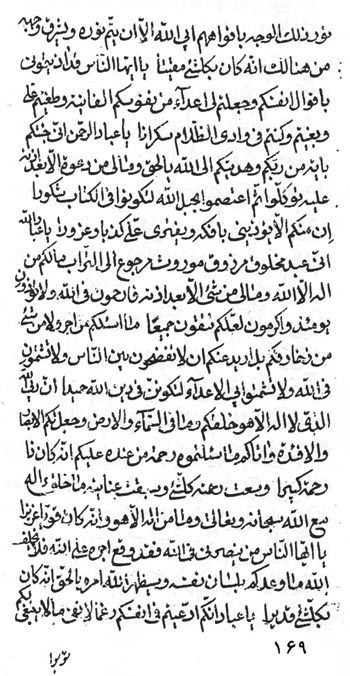 نور ذلك الوجه بافواههم ابى الله الا ان يتم نوره ويشرق وجهه
من هنالك انه كان بكلشئ مقيتا يا ايها الناس قد اذيتموني
باقوال انفسكم وجعلتم لي اعداء من نفوسكم الفانية وطغيتم علي
وبغيتم وكنتم في وادي الظلام سكرانا يا عباد الرحمن اني جئتكم
باية من ربكم وهديتكم الى الله بالحق ومالي من دعوة الا بعد اذنه
عليه توكلوا ثم اعتصموا بحبل الله لتكونوا في الكتاب
ان منكم الا يؤذيني بافكه ويفترى علي كذبا وغرورا يا عباد الله
اني عبد مخلوق مرزوق موروث مرجوع الى التراب مالكم من
اله الا الله ومالي من شئ الا بعد اذنه فارحمون في الله ولا تؤذون
يومئذ واكرمون لعلكم تتقون جميعا ما اسئلكم من اجر ولا من شئ
من زخارفكم بل اريد عنكم ان لا تفضحون بين الناس ولا تشتمون
في الله ولا تشمتوا بي الاعداء لتكونن في دين الله حميدا ان ربي الله
الذي لا اله الا هو خلقكم وما في السماء والارض وجعل لكم الابصار
والافئدة واتاكم ما سئلتموه رحمة من عنده عليكم انه كان ذا
رحمة كبيرا وسعت رحمته كلشئ وسبقت عنايته ما خلق اله
مع الله سبحانه وتعالى وما من اله الا هو وانه كان قويا عزيزا
يا ايها الناس من ينصرني في الله فقد وقع اجره على الله فلا يخلف
الله ما وعدكم بلسان نفسه وسيظهر الله امره بالحق انه كان
بكلشئ قديرا يا عباد انكم ادعيتم في انفسكم رغما لانفي ما لا ينبغي بكم
١٦٩